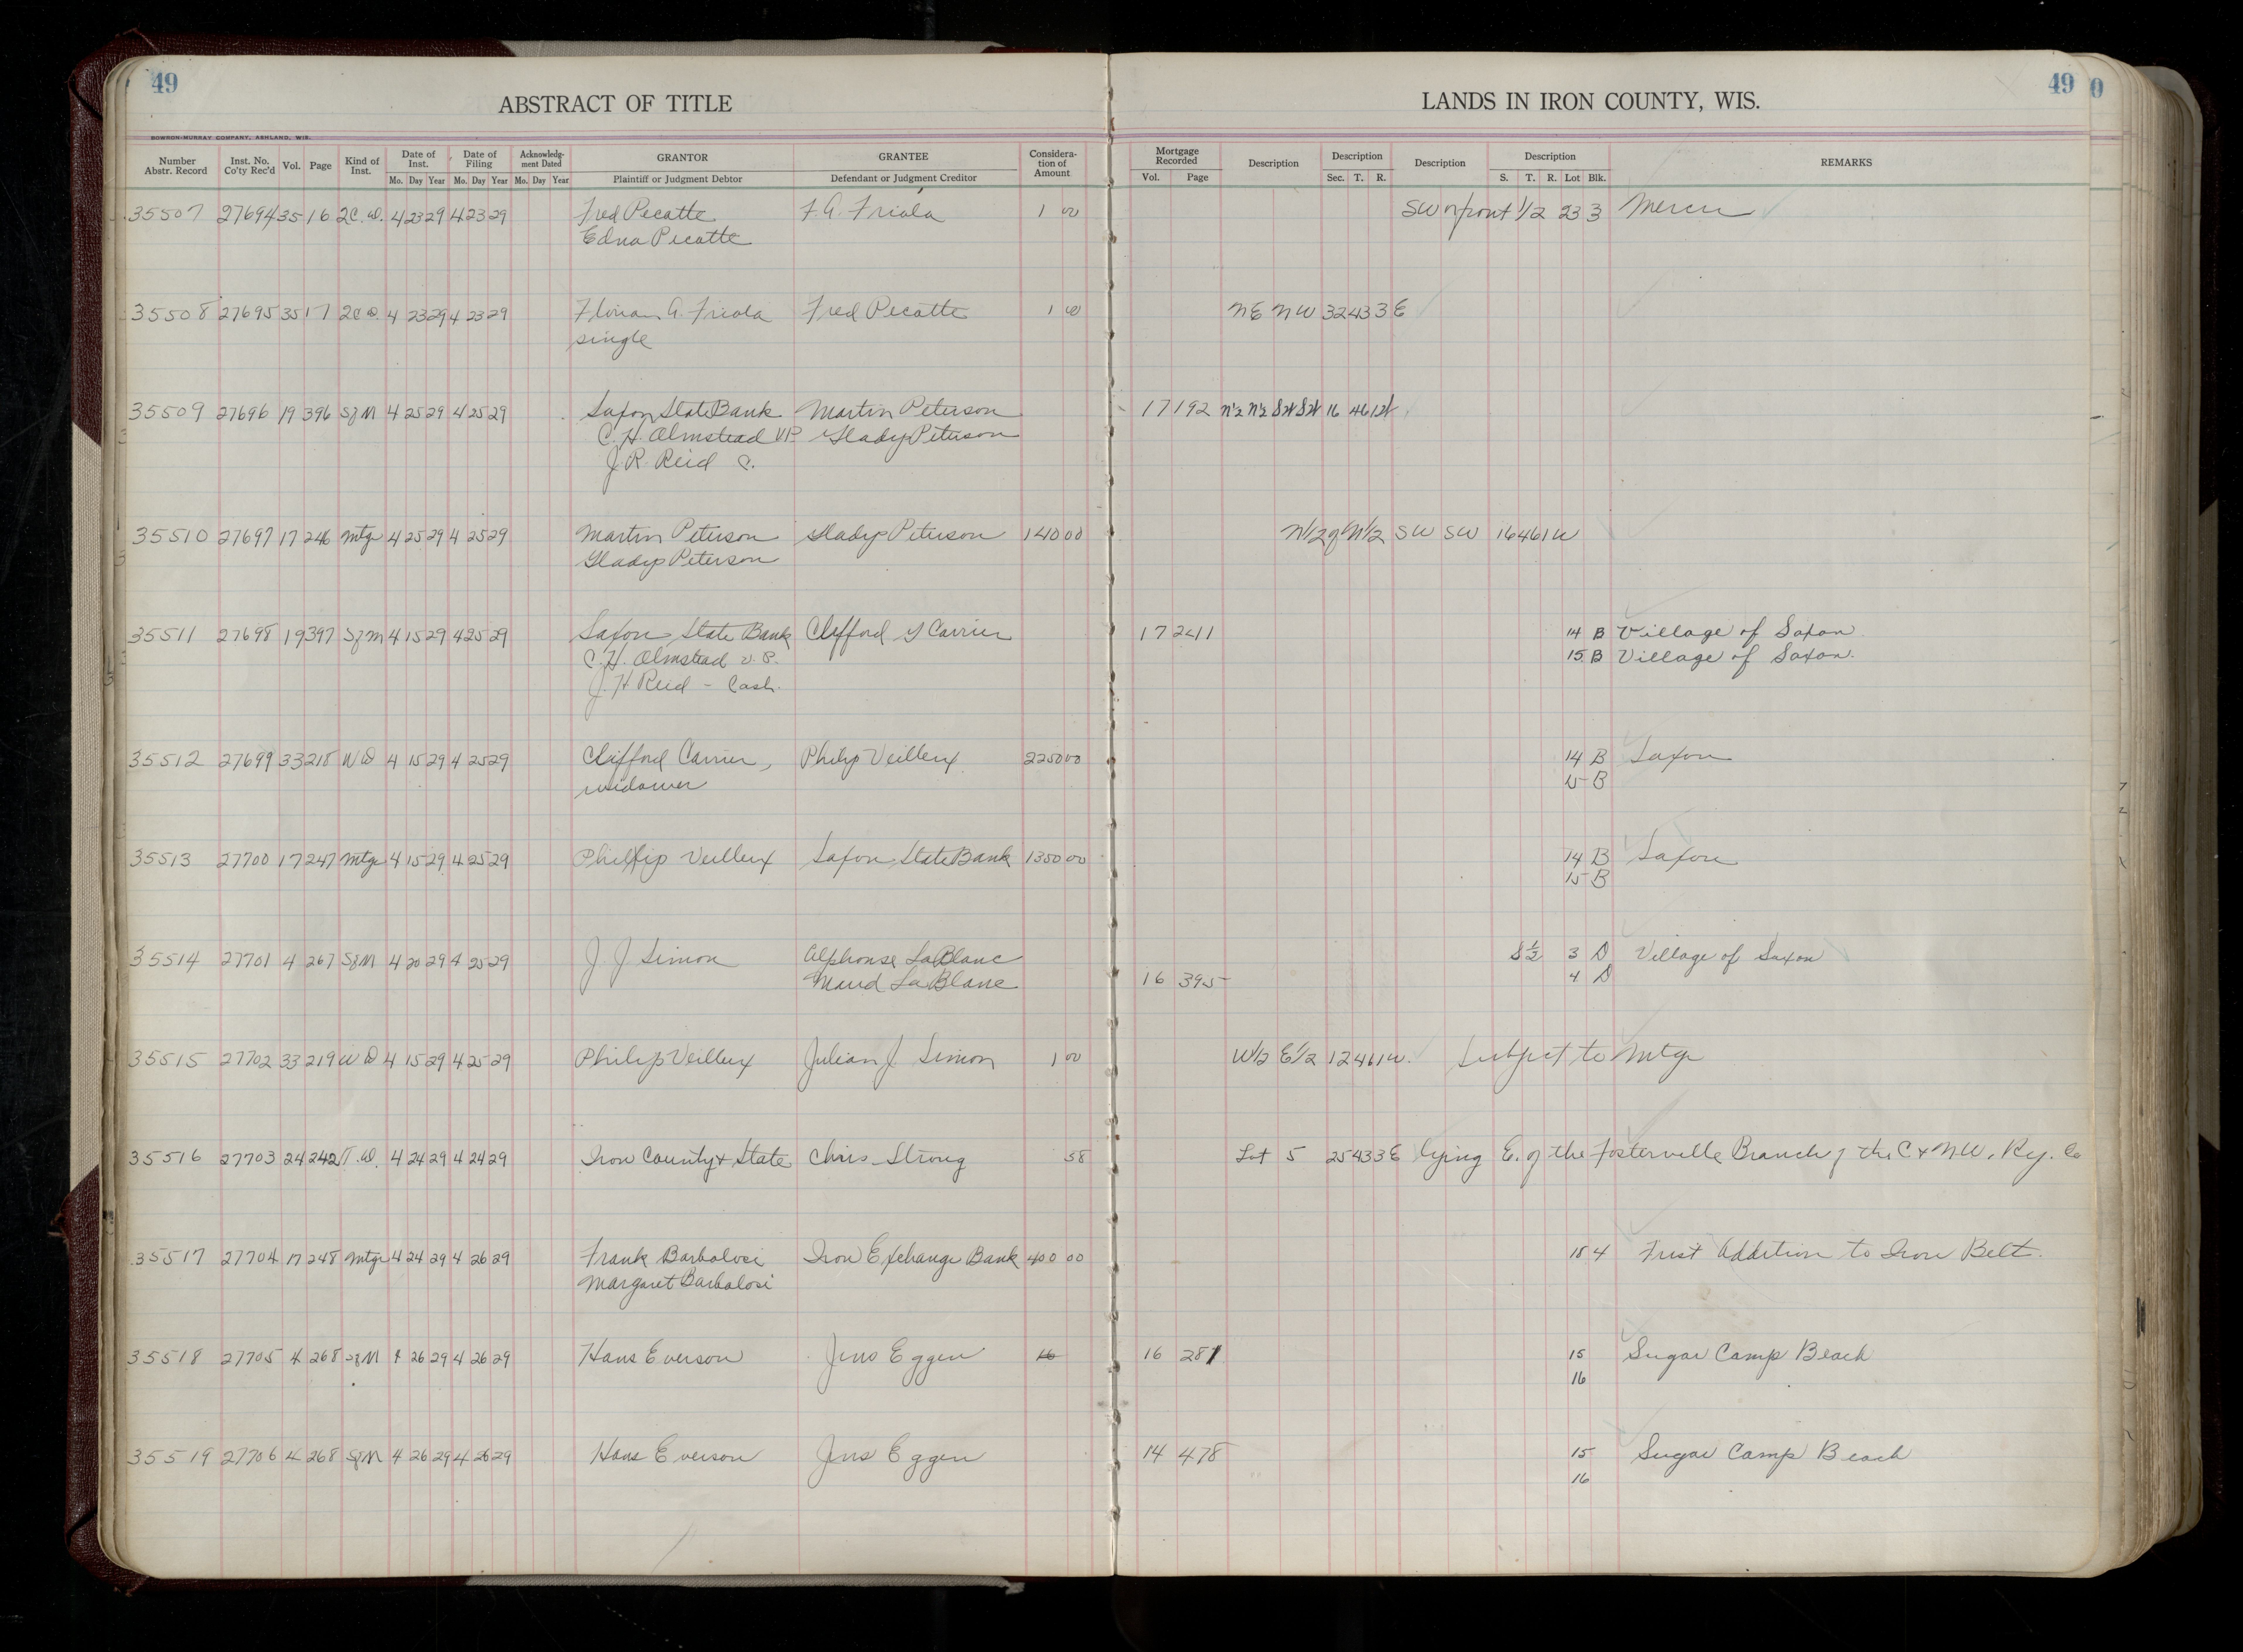 49
49
0
ABSTRACT OF TITLE
LANDS IN IRON COUNTY, WIS.
BOWRON-MURRAY COMPANY, ASHLAND, WIS.
Number Abstr. Record | Inst. No. Co'ty Rec'd | Vol. | Page | Kind of Inst. | Date of Inst. Mo. Day Year | Date of Filing Mo. Day Year | Acknowledgment Dated Mo. Day Year | GRANTOR Plaintiff or Judgment Debtor | GRANTEE Defendant or Judgment Creditor | Consideration of Amount | Mortgage Recorded Vol. Page | Description | Description Sec. T. R. | Description | Description S. T. R. Lot Blk. | REMARKS
35507 27694 35 16 2C.D. 4 23 29 4 23 29 Fred Pecatte F. A. Friola 1 00 SW or front 1/2 23 3 Mercer
Edna Pecatte
35508 27695 35 17 2C D. 4 23 29 4 23 29 Florian A. Friola Fred Pecatte 1 00 NE NW 32 43 3E
single
35509 27696 19 396 SfM 4 25 29 4 25 29 Saxon State Bank Martin Peterson 17 192 N½ N½ SW SW 16 46 1W
C. H. Olmstead VP. Gladys Peterson
J. R. Reid C.
35510 27697 17 246 Mtge 4 25 29 4 25 29 Martin Peterson Gladys Peterson 140 00 N1/2 of N1/2 SW SW 16 46 1W
Gladys Peterson
35511 27698 19 397 SfM 4 15 29 4 25 29 Saxon State Bank Clifford Carrier 17 241 14 B Village of Saxon
C. H. Olmstead V. P. 15 B Village of Saxon.
J. H Reid - Cash.
35512 27699 33 218 WD 4 15 29 4 25 29 Clifford Carrier, Philip Veilleux 2250 00 14 B Saxon
widower 15 B
35513 27700 17 247 Mtge 4 15 29 4 25 29 Phillip Veilleux Saxon State Bank 1350 00 14 B Saxon
15 B
35514 27701 4 267 SfM 4 20 29 4 25 29 J. J Simon Alphonse LaBlanc S½ 3 D Village of Saxon
Maud LaBlanc 16 395 4 D
35515 27702 33 219 WD 4 15 29 4 25 29 Philip Veilleux Julian J Simon 1 00 W1/2 E1/2 12 46 1W. Subject to Mtge
35516 27703 24 242 T.D. 4 24 29 4 24 29 Iron County & State Chris Strong 58 Lot 5 25 43 3E lying E. of the Fosterville Branch of the C & N.W. Ry. Co
35517 27704 17 248 Mtge 4 24 29 4 26 29 Frank Barbalosi Iron Exchange Bank 400 00 18 4 First Addition to Iron Belt.
Margaret Barbalosi
35518 27705 4 268 SfM 4 26 29 4 26 29 Hans Everson Jens Eggen 16 16 281 15 Sugar Camp Beach
16
35519 27706 4 268 SfM 4 26 29 4 26 29 Hans Everson Jens Eggen 14 478 15 Sugar Camp Beach
16